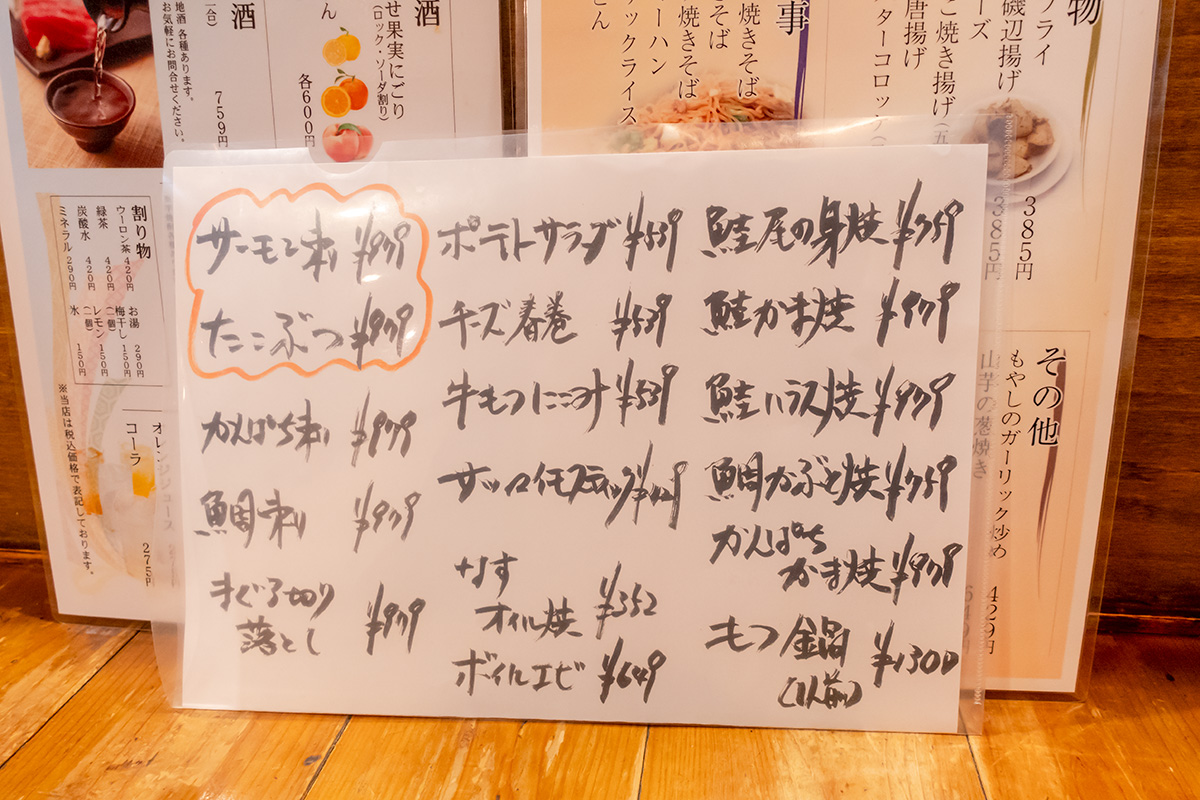 サーモン刺 ¥979
たこぶつ ¥979
かんぱち刺 ¥979
鯛刺 ¥979
まぐろ切り
落とし ¥979
ポテトサラダ ¥539
チーズ春巻 ¥539
牛もつにこみ ¥539
サツマイモスティック
なす
オイル焼 ¥352
ボイルエビ ¥649
鮭尾の身焼 ¥759
鮭かま焼 ¥979
鮭ハラス焼 ¥979
鯛かぶと焼 ¥759
かんぱち
かま焼 ¥979
もつ鍋 ¥1300
(1人前)
酒
地酒 各種あります。
お気軽にお問合せください。
759円
せ果実にごり
(ロック・ソーダ割り)
各600円
割り物
ウーロン茶 420円
緑茶 420円
炭酸水 420円
ミネラル 290円
お湯 290円
梅干し(一個) 150円
レモン(一個) 150円
氷 150円
※当店は税込価格で表記しております。
コーラ
275円
事
焼きそば
物
フライ
磯辺揚げ
こ焼き揚げ(五
唐揚げ
385円
385円
その他
もやしのガーリック炒め
429円
山芋の葱焼き